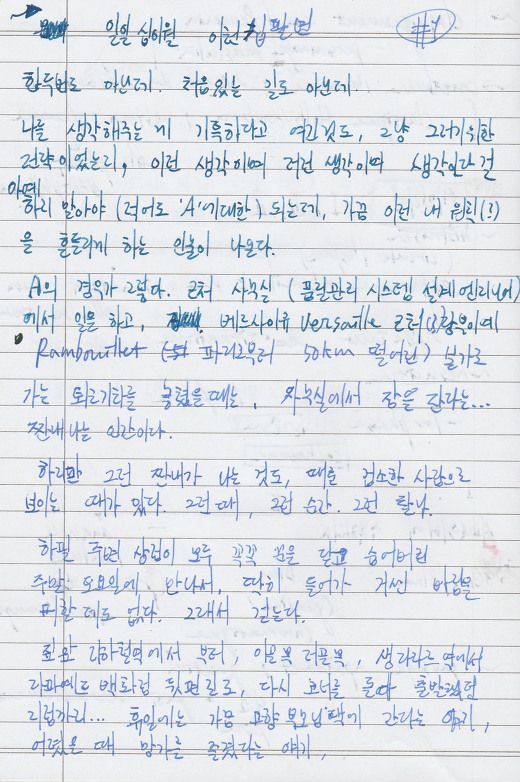 일일 십이월 이런 칩팔면 #4
한두번도 아닌데. 처음있는 일도 아닌데.
나를 생각해주는 게 기특하다고 여긴것도, 그냥 그러기위한
전략이었는지, 이런 생각이며 저런 생각이며 생각일랑 걸
아예
하지 말아야 (적어도 'A'에대한) 되는데, 가끔 이런 내 원칙(?)
을 흔들리게 하는 인물이 나온다.
A의 경우가 그렇다. 근처 사무실 (품질관리 시스템 설계 엔지니어)
에서 일을 하고, 베르사이유 Versaille 근처
Rambouillet (파리로부터 50km 떨어진) 본가로
가는 퇴근기차를 놓쳤을때는, 사무실에서 잠을 잔다는...
짠내나는 인간이다.
하지만 그런 짠내가 나는 것도, 때론 검소한 사람으로
보이는 때가 있다. 그런 때, 그런 순간. 그런 찰나.
하필 주변 상점이 모두 꼭꼭 문을 닫고 숨어버린
주말 토요일에 만나서, 딱히 들어가 거센 바람을
피할 데도 없다. 그래서 걷는다.
지하철역에서 부터, 이골목 저골목, 생라자르 역에서
라파예트 백화점 뒷편길로, 다시 코너를 돌아 출발했던
지점까지... 휴일에는 가끔 고향 부모님댁에 간다는 얘기,
어렸을 때 망가를 즐겼다는 얘기,